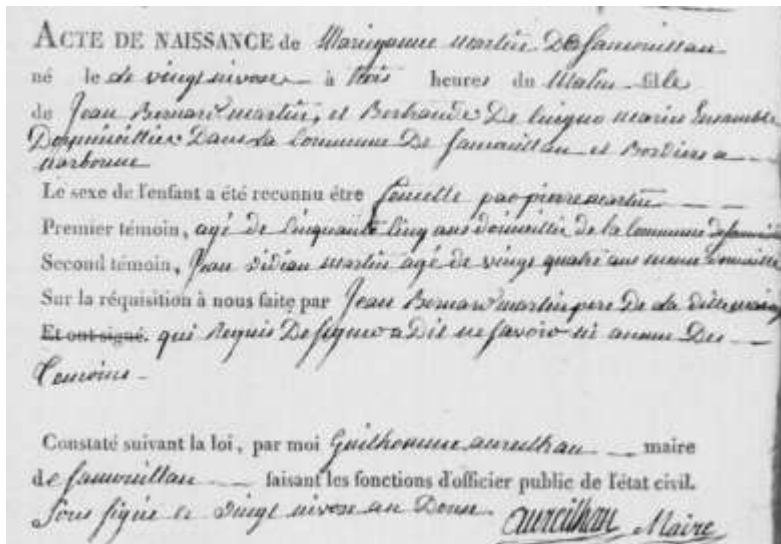 ACTE DE NAISSANCE de Marieanne martin De Samouillan
né le de vingt nivose à trois heures du Matin fille
de Jean Bernard martin, et Bertrande De lingno mariés Ensemble
Domicilliés Dans la Commune De Samouillan et Bordiers a
narbonne
Le sexe de l'enfant a été reconnu être femelle par pierre martin
Premier témoin, agé de Cinquante Cinq ans domicillié de la Commune de Samouillan
Second témoin, Jean martin agé de vingt quatre ans meme domicille
Sur la réquisition à nous faite par Jean Bernard martin pere De la ditte
Et ont signé. qui Requis De signer a Dit ne savoir ni aucun Des
Temoins
Constaté suivant la loi, par moi Guilhaume aureilhan maire
de Samouillan faisant les fonctions d'officier public de l'état civil.
Sous signé le vingt nivose an Douse
aureilhan Maire